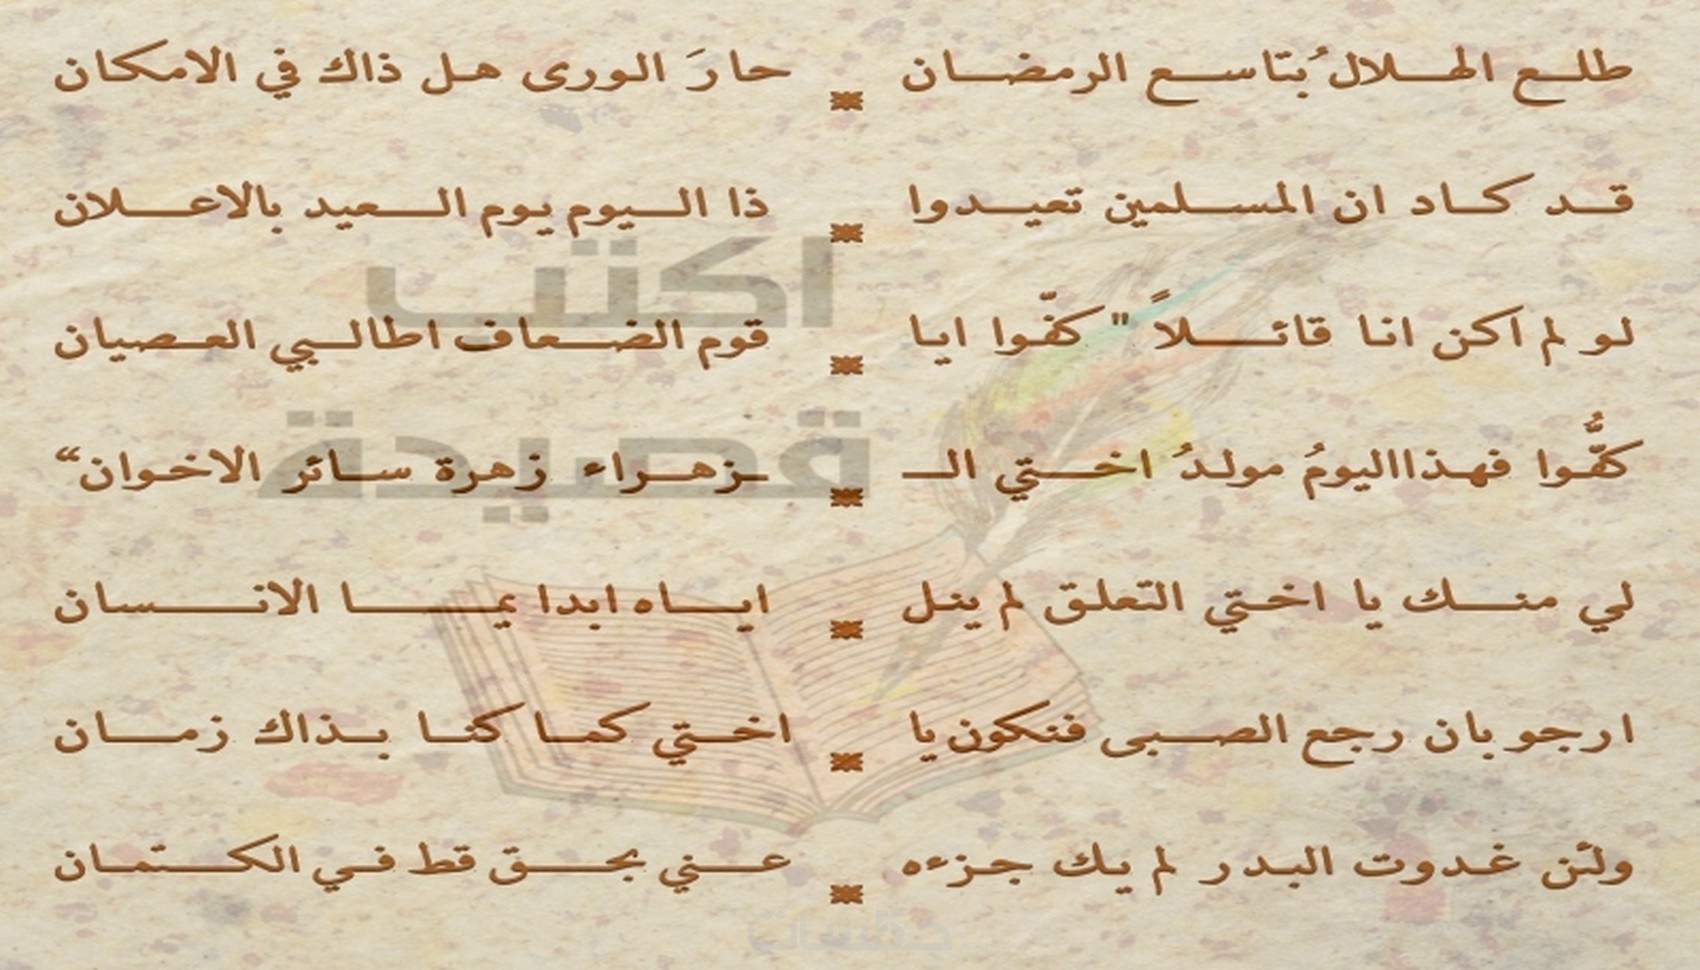 طلع الهلالُ بتاسع الرمضان حارَ الورى هل ذاك في الامكان
قد كاد ان المسلمين تعيدوا ذا اليوم يوم العيد بالاعلان
لو لم اكن انا قائلاً "كفّوا ايا قوم الضعاف اطالبي العصيان
كفُّوا فهذا اليومُ مولدُ اختي الـ ـزهراء زهرة سائر الاخوان“
لي منك يا اختي التعلق لم ينل اياه ابدا يما الانسان
ارجو بان رجع الصبى فنكون يا اختي كما كنا بذاك زمان
ولئن غدوت البدر لم يك جزءه عني بحق قط في الكتمان
اكتب
قصيدة